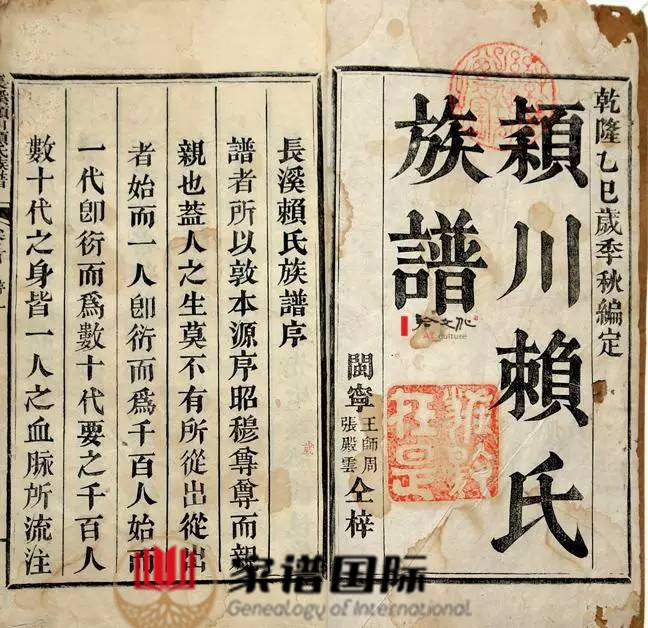 乾隆乙巳歲季秋編定
潁川賴氏
族譜
閩寧王師周張殿雲仝梓
長溪賴氏族譜序
譜者所以敦本源序昭穆尊尊而親
親也蓋人之生莫不有所從出從出
者始而一人卽衍而爲千百人始而
一代卽衍而爲數十代要之千百人
數十代之身皆一人之血脉所流注
谷文化
A.E culture
家谱国际
Genealogy of International